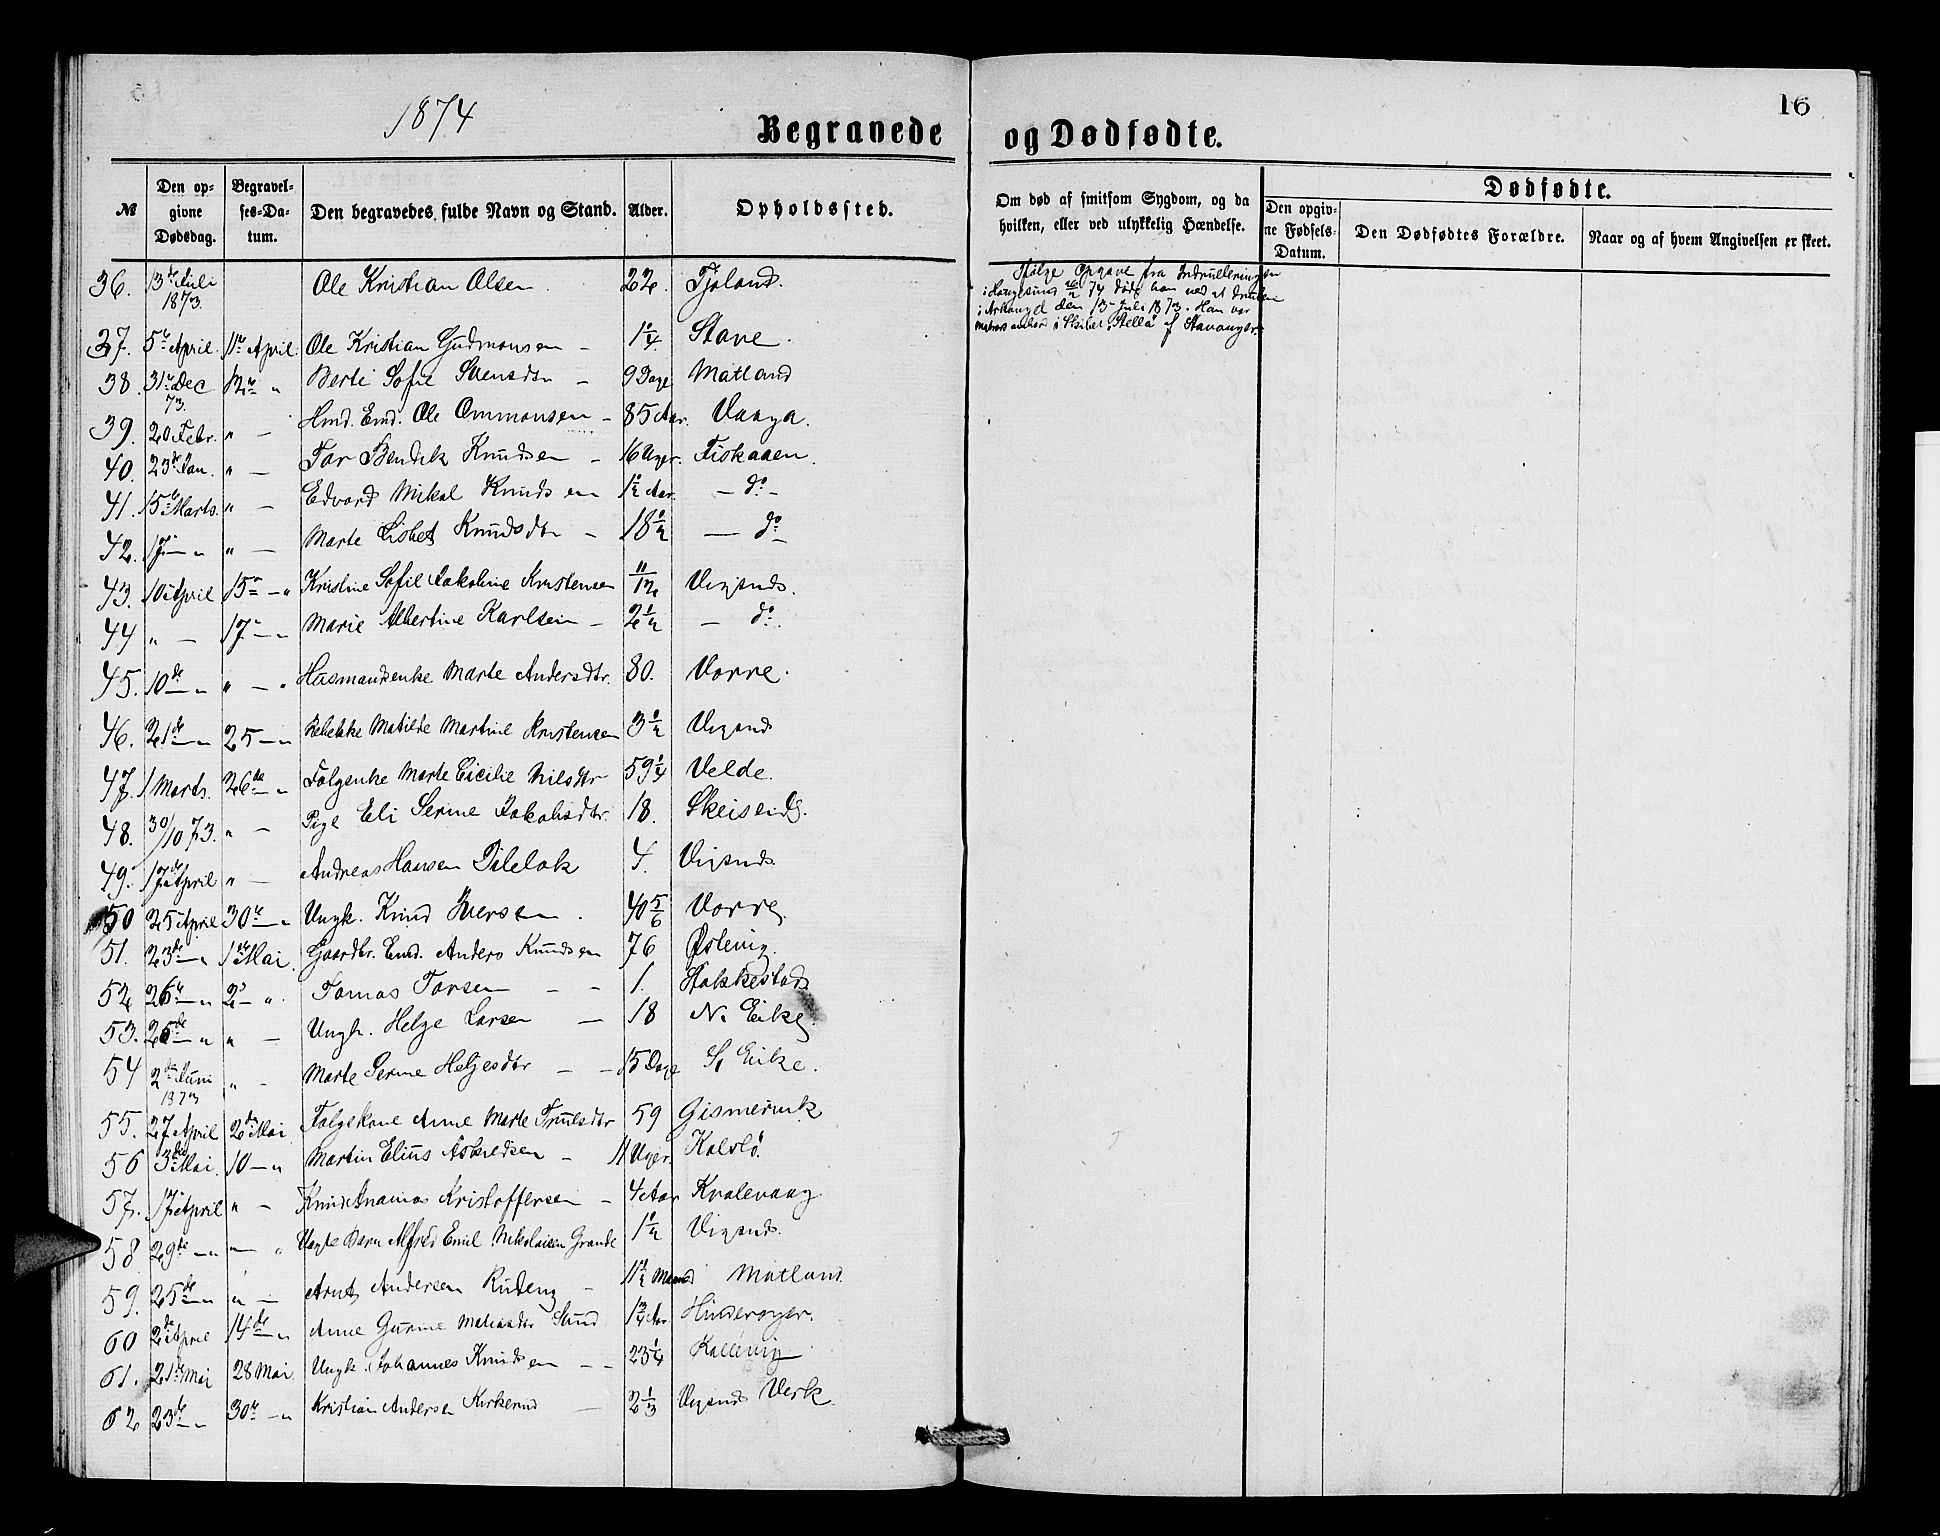 1874
16
Begravede og Dødfødte.
№ Den opgivne Dødsdag. Begravelses-Datum. Den begravedes fulde Navn og Stand. Alder. Opholdssted. Om død af smitsom Sygdom, og da hvilken, eller ved ulykkelig Hændelse.
Dødfødte.
Den opgivne Fødsels-Datum. Den Dødfødtes Forældre. Naar og af hvem Angivelsen er skeet.
36. 13de Juli 1873. Ole Kristian Olsen. 22. Tjoland.
Ifølge Opgave fra Indrulleringen
i Haugesund 26/2 74 døde han ved at drukne
i Arkangel den 13de Juli 1873. Han var
ombord i Skibet "Stella" af Stavanger.
37. 5te April. 11te April. Ole Kristian Gudmonsen – 1 1/4. Stave.
38. 31te Dec 73. 12te " Berte Sofie Svensdtr – 9 Dage Matland
39. 20 Febr. " — Hmd. Enkd. Ole Ommonsen – 85 Aar. Vaaga.
40. 23de Jan. " — Tor Bendik Knudsen – 16 Uger. Fiskaaen.
41. 15de Marts. " — Edvard Mikal Knudsen 1 1/2 Aar. — do –
42. 17– " " — Marte Lisbet Knudsdtr – 18 1/2 — do
43. 10 April 15de – " Kristine Sofie Jakobine Kristensen 11/12 Vigsnds.
44 " — 17– " Marie Albertine Karlsen – 2 1/2 — do.
45. 10de – " " — " Husmandsenke Marte Andersdtr. 80. Vorre.
46. 21de – " 25 — " Rebekke Matilde Martine Kristensen 3 1/2 Vigsnds
47. 1 Marts. 26de – " Følgenke Marte Cicilie Nilsdtr 59 1/4 Velde.
48. 30/10 73. " — Pige Eli Serine Jakobsdtr. 18. Skeiseid.
49. 17de April " — Andreas Hansen 4. Vigsnds.
50 25 April 30te – " Ungk. Knud Iversen. 40 5/6 Vorre.
51. 23de – " 1ste Mai. Gaardbr. Enkd. Anders Knudsen 76 Østevig.
52 26de – " 2de – ". Tomas Torsen – – 1. Hakkestads
53. 26de " " — Ungk. Helge Larsen — 18 N. Eike.
54 2den Juni 1873 " – Marte Serine Helgesdtr – – 15 Dage S. Eike.
55. 27 April 2den Mai Følgekone Anne Marte Truelsdtr 59 Gismervik
56 3die Mai. 10 — " Martin Elius – 11 Uger. Kolstø.
57. 17 April " – Knud Ananias Kristoffersen – 4 Aar Kvalevaag
58. 29de – " — " Uægte Barn Alfred Emil Nikolaisen Grande 1 1/2 Vigsnds.
59. 25de – " " — Arnt Andersen – 11 1/2 Maaned Matland.
60 2de April 14de – " Anne Gurine Sund 1 3/4 Aar Hinderager.
61. 21de Mai 28 Mai. Ungk. Johannes Knudsen – – 23 1/4 Kallevig
62 23de – " 30te – " Kristian Andersen Kirkerud — 2 1/3 Vigsnds Verk.